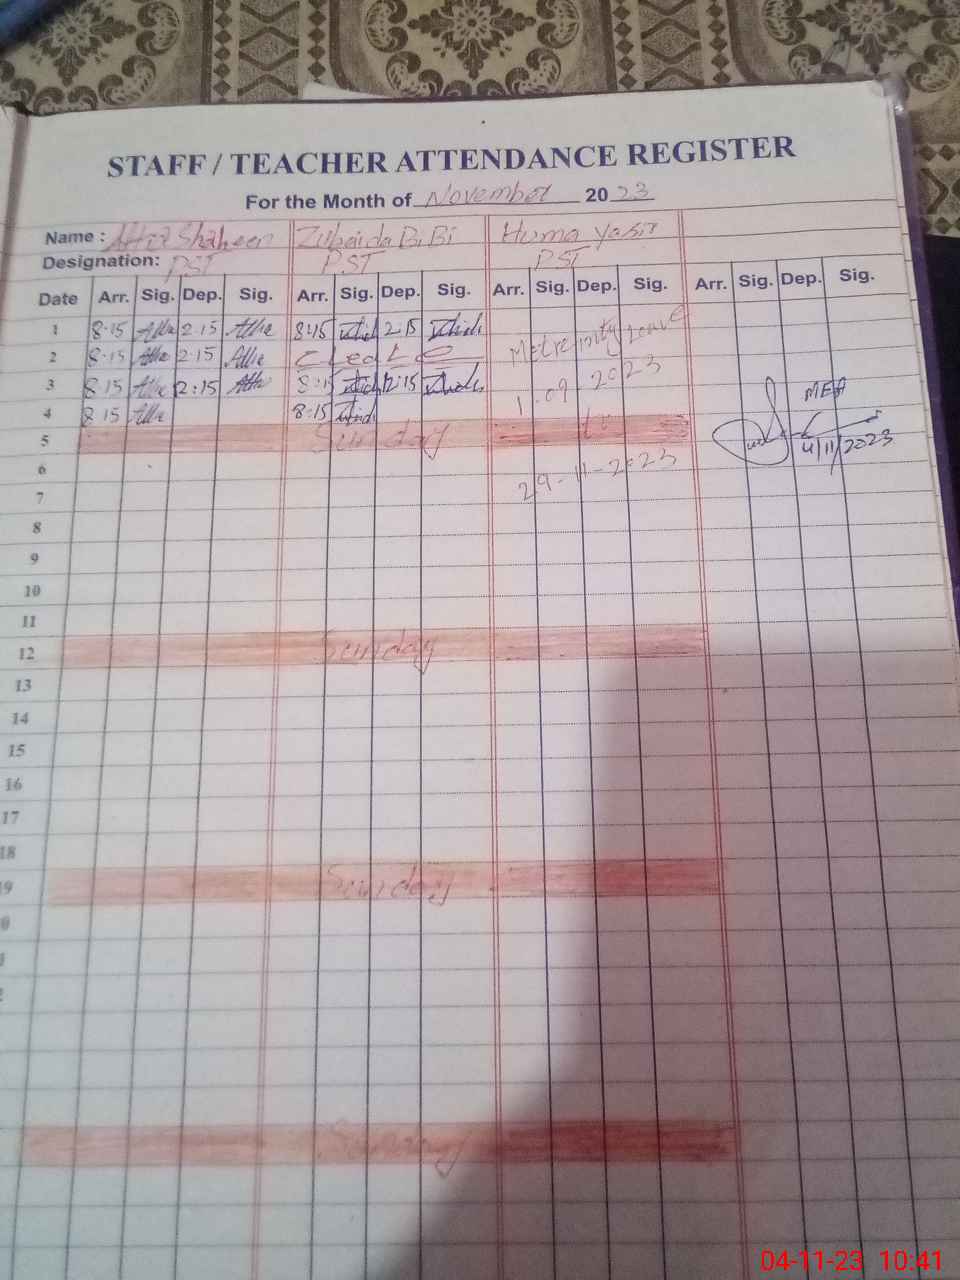 STAFF / TEACHER ATTENDANCE REGISTER
For the Month of November 2023
Name : Attia Shaheen Zubaida BiBi Huma Yasir
Designation: PST PST PST
Date Arr. Sig. Dep. Sig. Arr. Sig. Dep. Sig. Arr. Sig. Dep. Sig. Arr. Sig. Dep. Sig.
1 8·15 Attia 2:15 Attia 8:15 2:15 Metrenity Leave
2 8:15 Attia 2:15 Attia C Leave
3 8:15 Attia 12:15 Attia 8:15 12:15 1-09-2023 MEA
4 8:15 Attia 8:15 to
5 Sunday 4/11/2023
6 29-11-2023
7
8
9
10
11
12 Sunday
13
14
15
16
17
18
19 Sunday
0
Sunday
04-11-23 10:41